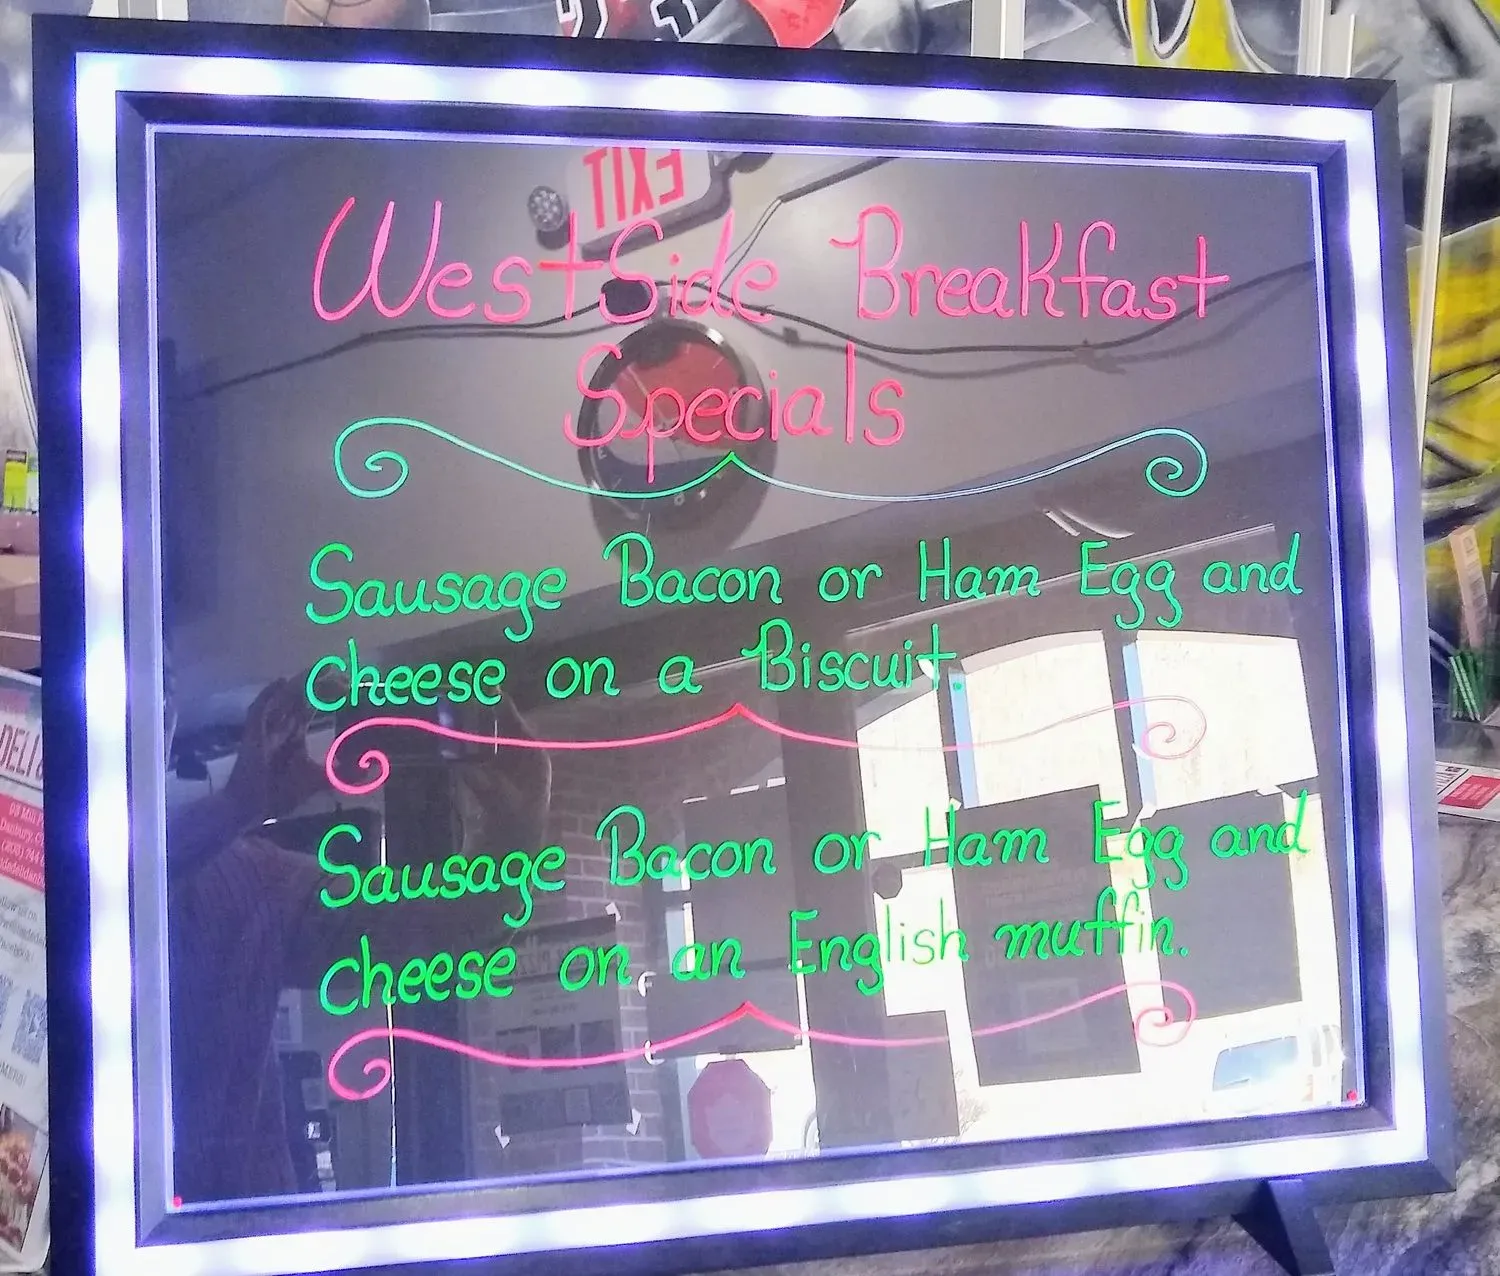 EXIT
WestSide Breakfast
Specials
Sausage Bacon or Ham Egg and
cheese on a Biscuit.
Sausage Bacon or Ham Egg and
cheese on an English muffin.
DELI